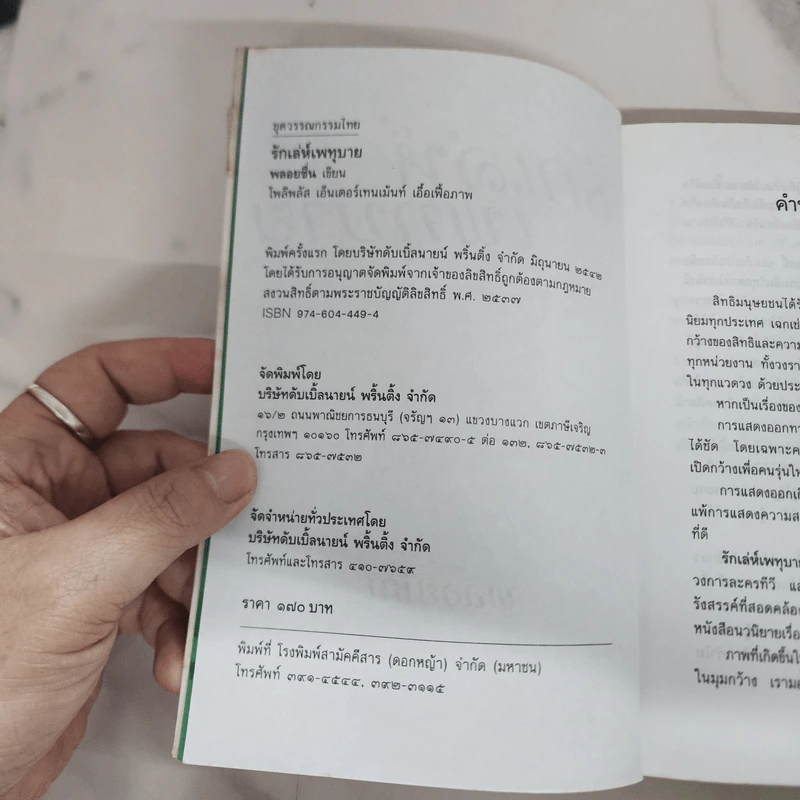 ชุดวรรณกรรมไทย
รักเล่ห์เพทุบาย
พลอยชื่น เขียน
โพลีพลัส เอ็นเตอร์เทนเม้นท์ เอื้อเฟื้อภาพ
พิมพ์ครั้งแรก โดยบริษัทดับเบิ้ลนายน์ พริ้นติ้ง จำกัด มิถุนายน ๒๕๔๒
โดยได้รับการอนุญาตจัดพิมพ์จากเจ้าของลิขสิทธิ์ถูกต้องตามกฎหมาย
สงวนสิทธิ์ตามพระราชบัญญัติลิขสิทธิ์ พ.ศ. ๒๕๓๗
ISBN 974-604-449-4
จัดพิมพ์โดย
บริษัทดับเบิ้ลนายน์ พริ้นติ้ง จำกัด
๑๖/๒ ถนนพาณิชยการธนบุรี (จรัญฯ ๑๓) แขวงบางแวก เขตภาษีเจริญ
กรุงเทพฯ ๑๐๑๖๐ โทรศัพท์ ๘๖๕-๗๔๙๐-๕ ต่อ ๑๓๒, ๘๖๕-๗๕๓๒-๓
โทรสาร ๘๖๕-๗๕๓๒
จัดจำหน่ายทั่วประเทศโดย
บริษัทดับเบิ้ลนายน์ พริ้นติ้ง จำกัด
โทรศัพท์และโทรสาร ๔๑๐-๗๖๕๙
ราคา ๑๗๐ บาท
พิมพ์ที่ โรงพิมพ์สามัคคีสาร (ดอกหญ้า) จำกัด (มหาชน)
โทรศัพท์ ๓๙๑-๔๕๔๔, ๓๙๒-๓๑๑๕
สิทธิมนุษยชนได้รั
นิยมทุกประเทศ เฉกเช่
กว้างของสิทธิและความ
ทุกหน่วยงาน ทั้งวงรา
ในทุกแวดวง ด้วยประ
หากเป็นเรื่องของ
การแสดงออกทา
ได้ชัด โดยเฉพาะค
เปิดกว้างเพื่อคนรุ่นให
การแสดงออกเกี
แพ้การแสดงความส
ที่ดี
รักเล่ห์เพทุบาย
วงการละครทีวี แ
รังสรรค์ที่สอดคล้อง
หนังสือนวนิยายเรื่อ
ภาพที่เกิดขึ้นใ
ในมุมกว้าง เรามอ